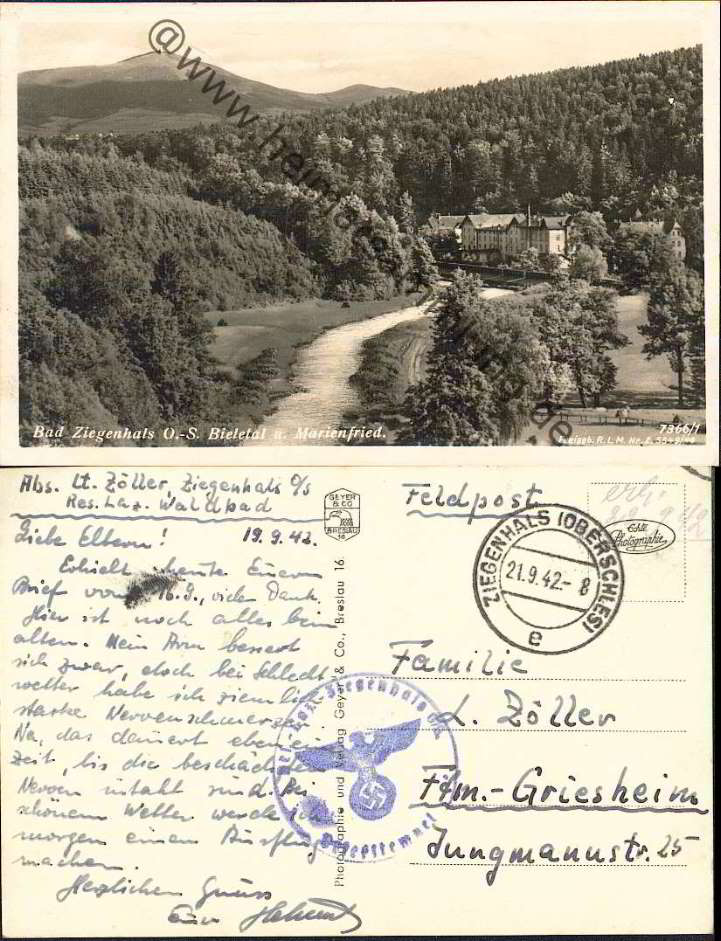 Bad Ziegenhals O.-S. Bieletal u. Marienfried.
7366/1
Freigeg. R.L.M. Nr.
Abs. Lt. Zöller, Ziegenhals O/S
Res. Laz. Waldbad
Liebe Eltern! 19.9.42.
Erhielt heute Euern
Brief vom 16.9., vielen Dank.
Hier ist noch alles beim
alten. Mein Arm bessert
sich zwar, doch bei Schlecht-
wetter habe ich ziemlich
starke Nervenschmerzen.
Na, das dauert eben
Zeit, bis die
Nerven intakt sind. Bei
schönem Wetter werde ich
morgen einen Ausflug
machen.
Herzlichen Gruss
Euer Helmut
GEYER
& CO.
BRESLAU
16
Photographie und Verlag Geyer & Co., Breslau 16
Feldpost
Echte
Photographie
ZIEGENHALS (OBERSCHLES)
21.9.42-8
e
Ziegenhals
Briefstempel
Familie
L. Zöller
Ffm.-Griesheim
Jungmannstr. 25